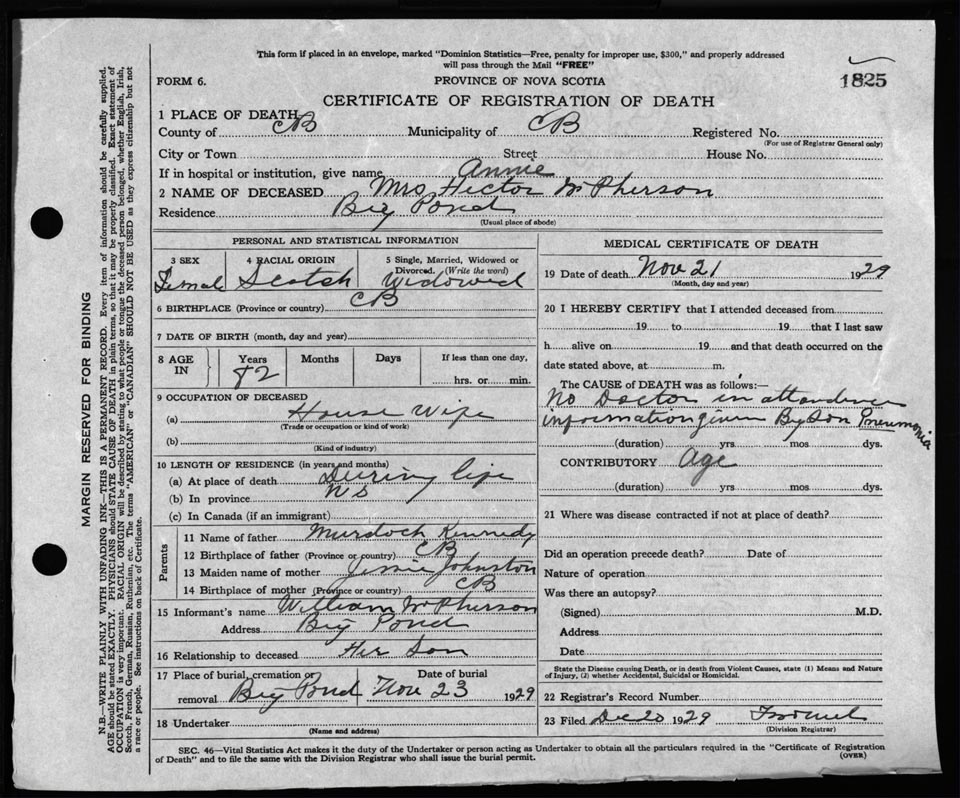 This form if placed in an envelope, marked "Dominion Statistics—Free, penalty for improper use, $300," and properly addressed
will pass through the Mail "FREE"
FORM 6. PROVINCE OF NOVA SCOTIA 1825
CERTIFICATE OF REGISTRATION OF DEATH
1 PLACE OF DEATH
County of CB Municipality of CB Registered No.
(For use of Registrar General only)
City or Town Street House No.
If in hospital or institution, give name Annie
2 NAME OF DECEASED Mrs Hector McPherson
Residence Big Pond
(Usual place of abode)
PERSONAL AND STATISTICAL INFORMATION
3 SEX 4 RACIAL ORIGIN 5 Single, Married, Widowed or
Divorced. (Write the word)
Femal Scotch Widowed
6 BIRTHPLACE (Province or country) CB
7 DATE OF BIRTH (month, day and year)
8 AGE IN Years Months Days If less than one day,
82 hrs. or min.
9 OCCUPATION OF DECEASED
(a) House Wife
(Trade or occupation or kind of work)
(b)
(Kind of industry)
10 LENGTH OF RESIDENCE (in years and months)
(a) At place of death During life
(b) In province NS
(c) In Canada (if an immigrant)
Parents
11 Name of father Murdoch Kennedy
12 Birthplace of father (Province or country) CB
13 Maiden name of mother Jessie Johnston
14 Birthplace of mother (Province or country) CB
15 Informant's name William McPherson
Address Big Pond
16 Relationship to deceased Her Son
17 Place of burial, cremation or Date of burial
removal Big Pond Nov 23 1929
18 Undertaker
(Name and address)
MEDICAL CERTIFICATE OF DEATH
19 Date of death Nov 21 1929
(Month, day and year)
20 I HEREBY CERTIFY that I attended deceased from
19 to 19 that I last saw
h alive on 19 and that death occurred on the
date stated above, at m.
The CAUSE of DEATH was as follows:—
No Doctor in attendence
information given By Son Pneumonia
(duration) yrs mos dys.
CONTRIBUTORY Age
(duration) yrs mos dys.
21 Where was disease contracted if not at place of death?
Did an operation precede death? Date of
Nature of operation
Was there an autopsy?
(Signed) M.D.
Address
Date
State the Disease causing Death, or in death from Violent Causes, state (1) Means and Nature
of Injury, (2) whether Accidental, Suicidal or Homicidal.
22 Registrar's Record Number
23 Filed Dec 20 1929
(Division Registrar)
SEC. 46—Vital Statistics Act makes it the duty of the Undertaker or person acting as Undertaker to obtain all the particulars required in the "Certificate of Registration
of Death" and to file the same with the Division Registrar who shall issue the burial permit. (OVER)
MARGIN RESERVED FOR BINDING
N.B.—WRITE PLAINLY WITH UNFADING INK—THIS IS A PERMANENT RECORD. Every item of information should be carefully supplied.
AGE should be stated EXACTLY. PHYSICIANS should STATE CAUSE OF DEATH in plain terms, so that it may be properly classified. Exact statement of
OCCUPATION is very important. RACIAL ORIGIN will be described by stating to what people or tongue the deceased person belonged, whether English, Irish,
Scotch, French, German, Russian, Ruthenian, etc. The terms "AMERICAN" or "CANADIAN" SHOULD NOT BE USED as they express citizenship but not
a race or people. See instructions on back of Certificate.